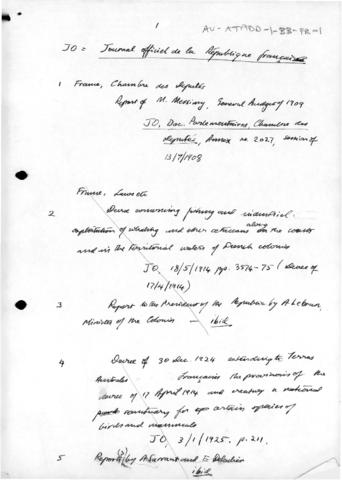 1
AU-ATADD-1-BB-FR-1
JO = Journal officiel de la République française
1 France, Chambre des députés
Report of M. Messimy, General Budget of 1909
JO, Doc. Parlementaires, Chambre des
députés, Annex no. 2027, session of
13/7/1908
France, Laws etc
2 Decree concerning fishing and industrial
exploitation of whaling and other cetaceans along the coasts
and in the territorial waters of French colonies
JO 18/5/1914 pp. 3574-75 (decree of
17/4/1914)
3 Report to the President of the Republic by A Lebrun,
Minister of the Colonies - ibid
4 Decree of 30 Dec. 1924 extending to Terres
Australes françaises the provisions of the
decree of 17 April 1914 and creating a national
park sanctuary for certain species of
birds and mammals
JO, 3/1/1925. p. 211.
5 Report(s) by A Sarraut and E Daladier
ibid